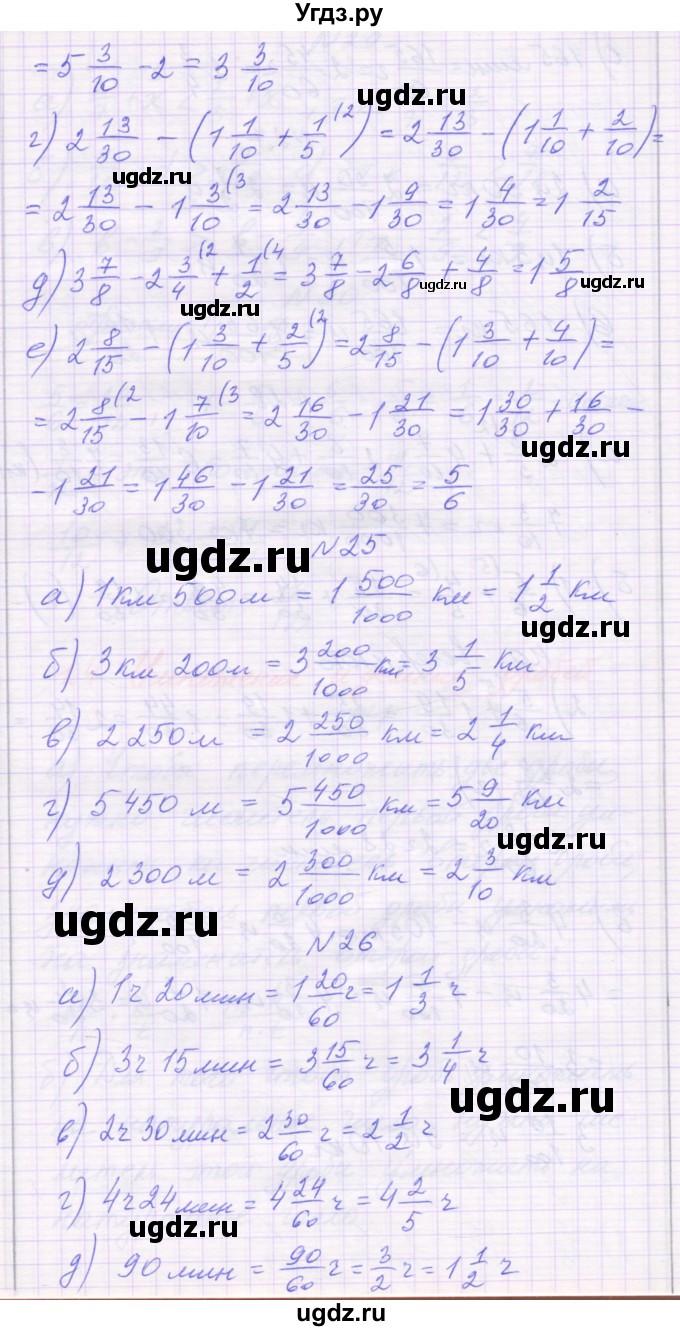 Угдз.ру
= 5 3/10 - 2 = 3 3/10
ugdz.ru
г) 2 13/30 - (1 1/10 + 1/5 (2) = 2 13/30 - (1 1/10 + 2/10) =
ugdz.ru
= 2 13/30 - 1 3/10 (3 = 2 13/30 - 1 9/30 = 1 4/30 = 1 2/15
д) 3 7/8 - 2 3/4 (2 + 1/2 (4 = 3 7/8 - 2 6/8 + 4/8 = 1 5/8
ugdz.ru ugdz.ru ugdz.ru
е) 2 8/15 - (1 3/10 + 2/5 (2) = 2 8/15 - (1 3/10 + 4/10) =
= 2 8/15 (2 - 1 7/10 (3 = 2 16/30 - 1 21/30 = 1 30/30 + 16/30 -
ugdz.ru
- 1 21/30 = 1 46/30 - 1 21/30 = 25/30 = 5/6
N 25
ugdz.ru
а) 1 км 500 м = 1 500/1000 км = 1 1/2 км
ugdz.ru
б) 3 км 200 м = 3 200/1000 км = 3 1/5 км
в) 2 250 м = 2 250/1000 км = 2 1/4 км
г) 5 450 м = 5 450/1000 км = 5 9/20 км
ugdz.ru
д) 2 300 м = 2 300/1000 км = 2 3/10 км
ugdz.ru
N 26
а) 1 ч 20 мин = 1 20/60 ч = 1 1/3 ч
б) 3 ч 15 мин = 3 15/60 ч = 3 1/4 ч
ugdz.ru
в) 2 ч 30 мин = 2 30/60 ч = 2 1/2 ч
г) 4 ч 24 мин = 4 24/60 ч = 4 2/5 ч
ugdz.ru
д) 90 мин = 90/60 ч = 3/2 ч = 1 1/2 ч
ugdz.ru